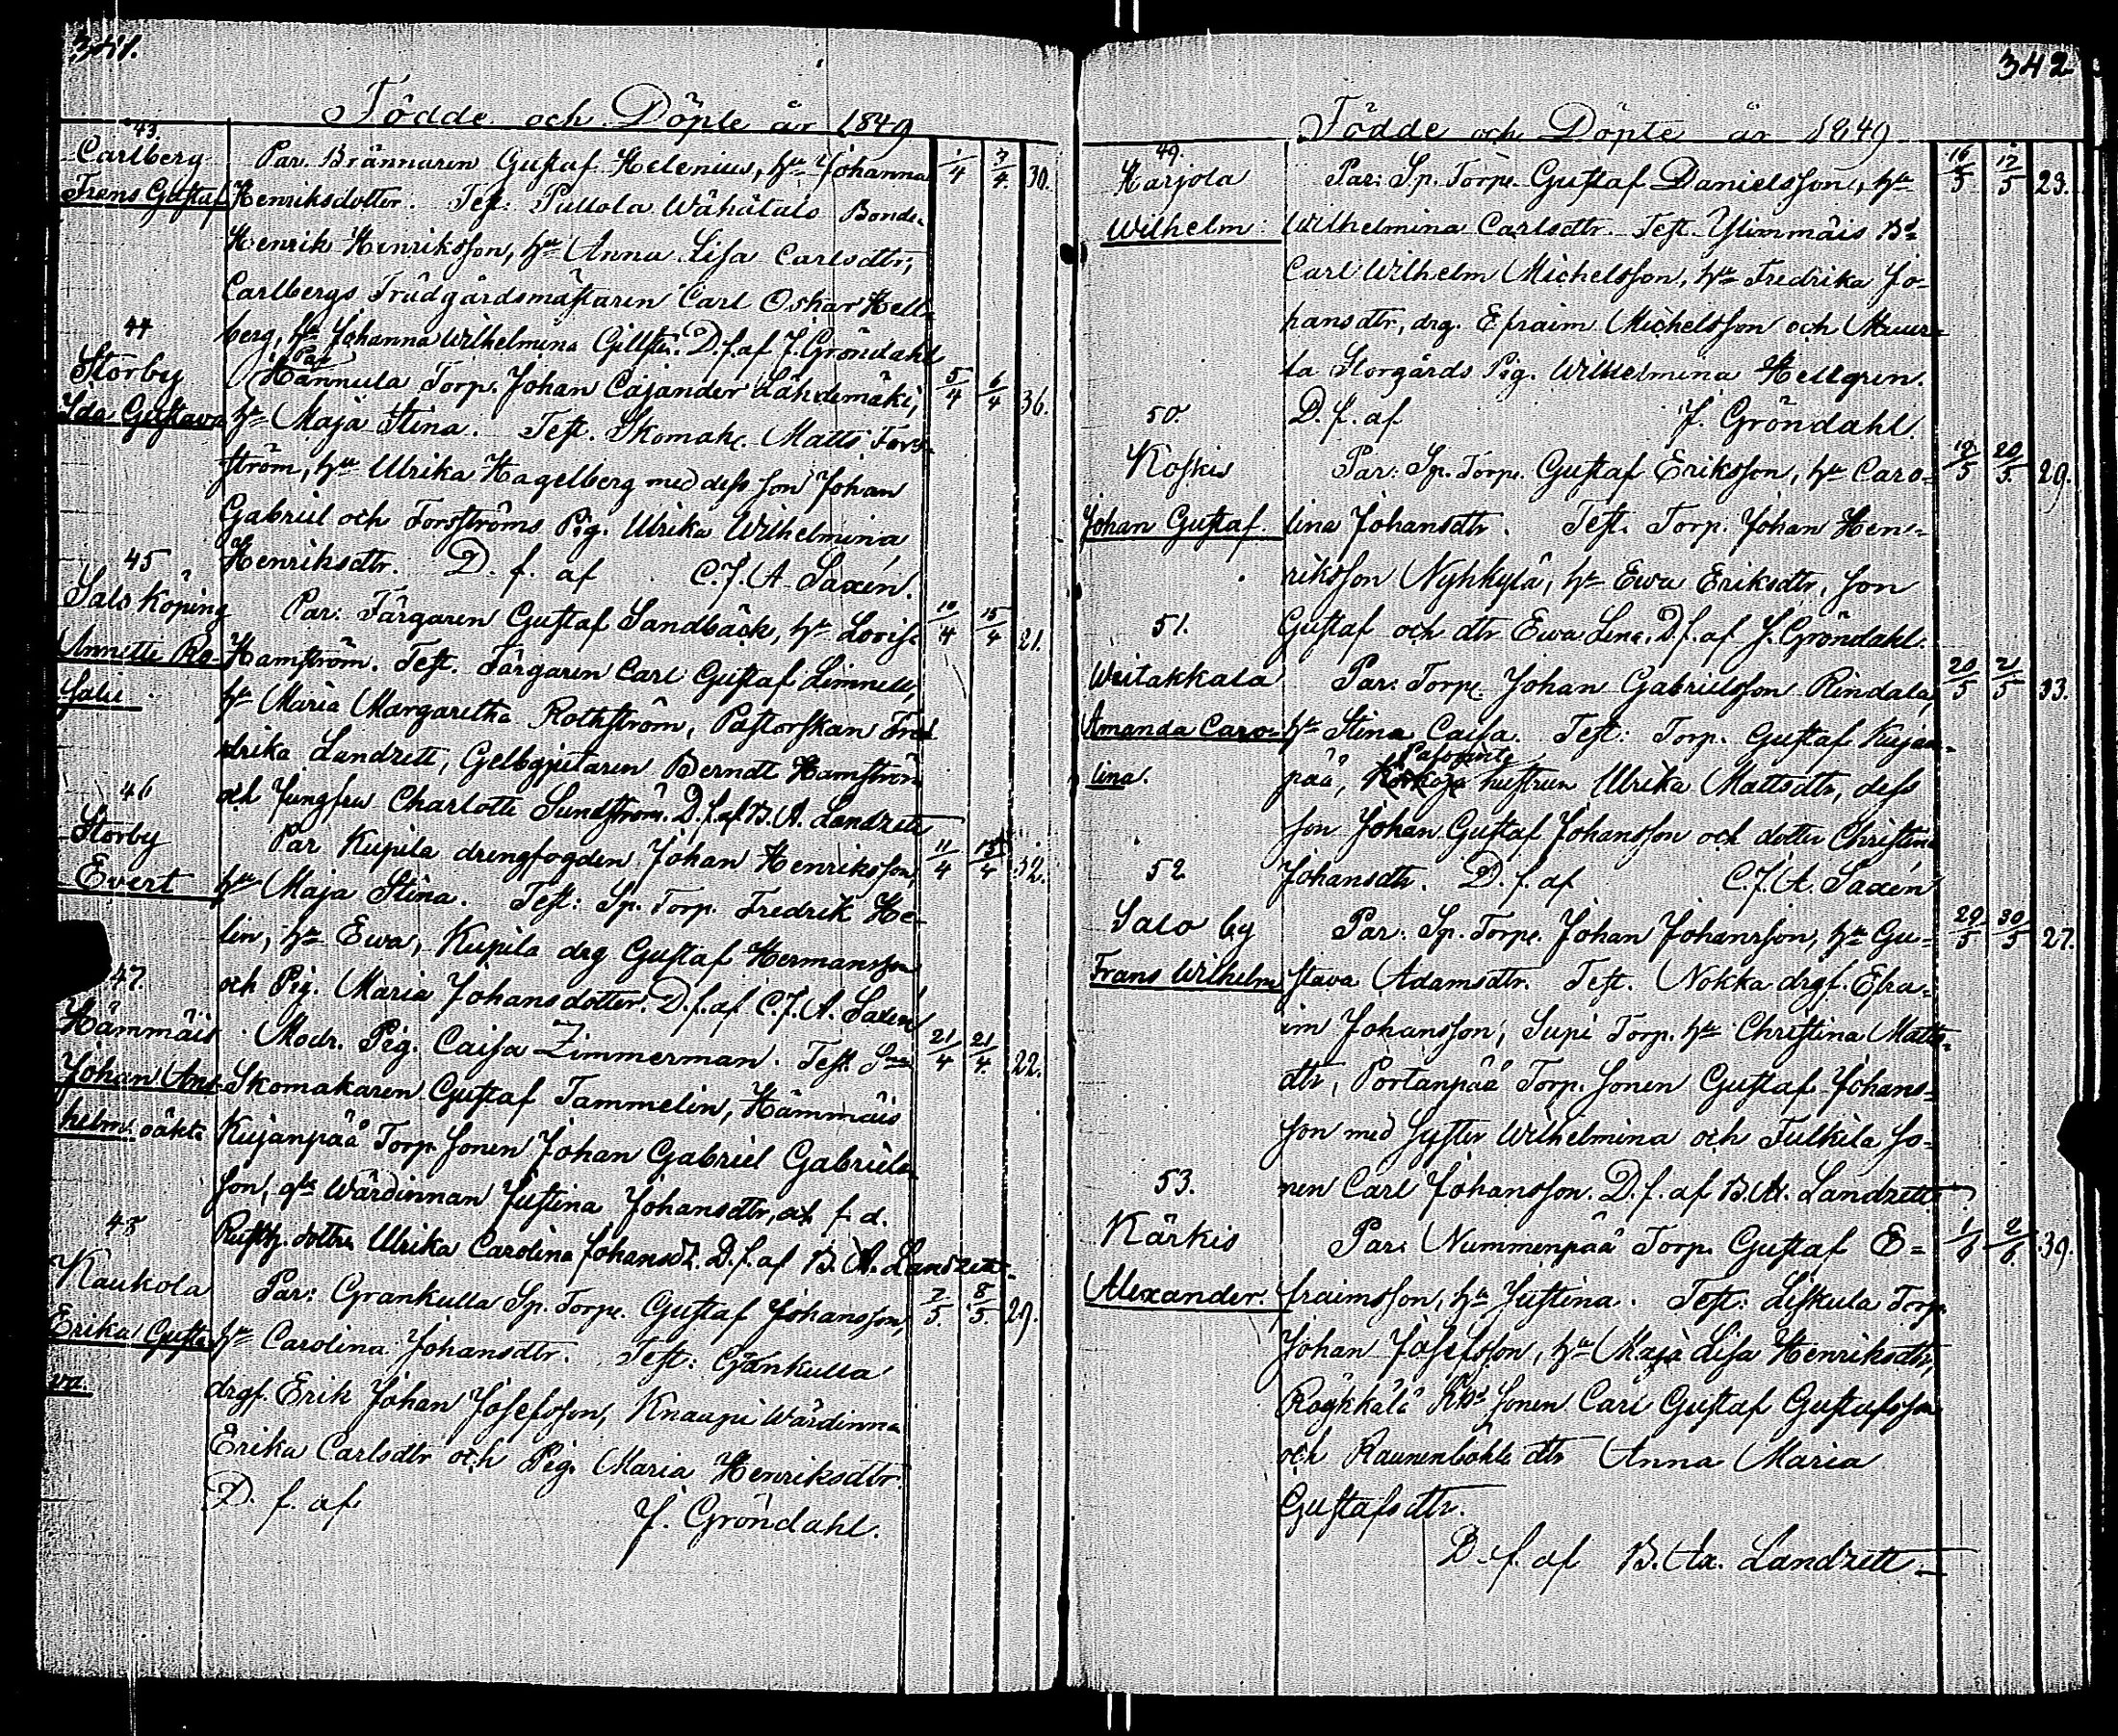 341.
Födde och Döpte år 1849
43
Carlberg
Frens Gustaf
Par. Brännaren Gustaf Helenius, hu Johanna
Henriksdotter. Test: Pullola Wähätalo Bonde
Henrik Henriksson, hu Anna Lisa Carlsdtr,
Carlbergs Trädgårdsmästaren Carl Oskar Hell-
berg, hu Johanna Wilhelmina D. f. af J. Gröndahl
1/4 3/4. 30.
44
Storby
Ida Gustava
Par
Hännula Torp. Johan Cajander Lähdemäki,
hu Maja Stina. Test. Skomak. Matts Fors-
ström, hu Ulrika Hagelberg med dess son Johan
Gabriel och Forsströms Pig. Ulrika Wilhelmina
Henriksdtr. D. f. af C. J. A. Saxén.
5/4 6/4 36.
45
Salo köping
Annette Ro-
salie
Par: Färgaren Gustaf Sandbäck, hu Lovisa
Hamström. Test. Färgaren Carl Gustaf Limnell,
hu Maria Margaretha Rothström, Pastorskan Fred
drika Landzett, Gelbgjutaren Berndt Hamström
och Jungfru Charlotte Sundström. D. f. af B. A. Landzett
10/4 15/4 21.
46
Storby
Evert
Par Kupila drengfogden Johan Henriksson,
hu Maja Stina. Test: Sp. Torp. Fredrik He-
lin, hu Ewa, Kupila drg Gustaf Hermansson
och Pig. Maria Johansdotter. D. f. af C. J. A. Saxén
11/4 15/4 32.
47.
Hämmäis
Johan Ans-
helm. oäkta
Modr. Pig. Caisa Zimmerman. Test.
Skomakaren Gustaf Tammelin, Hämmäis
Kujanpää Torp. Sonen Johan Gabriel Gabriels
son, Wärdinnan Justina Johansdtr, f. d.
Rusth. dottr Ulrika Carolina Johansd. D. f. af B. A. Landzett.
21/4 21/4. 22.
48
Kaukola
Erika Gusta-
va.
Par: Grankulla Sp. Torpe. Gustaf Johansson,
hu Carolina Johansdtr. Test: Grankulla
drgf. Erik Johan Josefsson, Knaapi Wärdinna
Erika Carlsdtr och Pig. Maria Henriksdtr.
D. f. af J. Gröndahl.
7/5. 8/5. 29.
342
Födde och Döpte år 1849
49.
Karjola
Wilhelm
Par: Sp. Torpe. Gustaf Danielsson, hu
Wilhelmina Carlsdtr. Test. Ylimmäis Bd
Carl Wilhelm Michelsson, hu Fredrika Jo-
hansdtr, drg. Efraim Michelsson och Muur-
la Storgårds Pig. Wilhelmina Hellgren.
D. f. af J. Gröndahl.
16/5 17/5 23.
50.
Koskis
Johan Gustaf.
Par: Sp. Torpe. Gustaf Eriksson, hu Caro-
lina Johansdtr. Test. Torp. Johan Hen-
riksson Nyhkylä, hu Ewa Eriksdtr, son
Gustaf och dtr Ewa Lena. D. f. af J. Gröndahl.
19/5 20/5. 29.
51.
Weitakkala
Amanda Caro-
lina.
Par: Torpe. Johan Gabrielsson Rindala,
hu Stina Caisa. Test: Torp. Gustaf Kujan-
pää, hustrun Ulrika Mattsdtr, dess
son Johan Gustaf Johansson och dotter Christina
Johansdtr. D. f. af C. J. A. Saxén
20/5 21/5 33.
52.
Salo by
Frans Wilhelm
Par: Sp. Torpe. Johan Johansson, hu Gu-
stava Adamsdtr. Test. Nokka drgf. Efra-
im Johansson, Supi Torp. hu Christina Matts-
dtr, Portanpää Torp. sonen Gustaf Johans-
son med syster Wilhelmina och Tulkila So-
nen Carl Johansson. D. f. af B. Ax. Landzett
29/5 30/5 27.
53.
Kärkis
Alexander.
Par: Nummenpää Torp. Gustaf E=
fraimsson, hu Justina. Test: Liskula Torp.
Johan Josefsson, hu Maja Lisa Henriksdtr,
Röykkälä Sonen Carl Gustaf Gustafsson
och Raunenbohls dtr Anna Maria
Gustafsdtr.
D. f. af B. Ax. Landzett
1/6 2/6. 39.